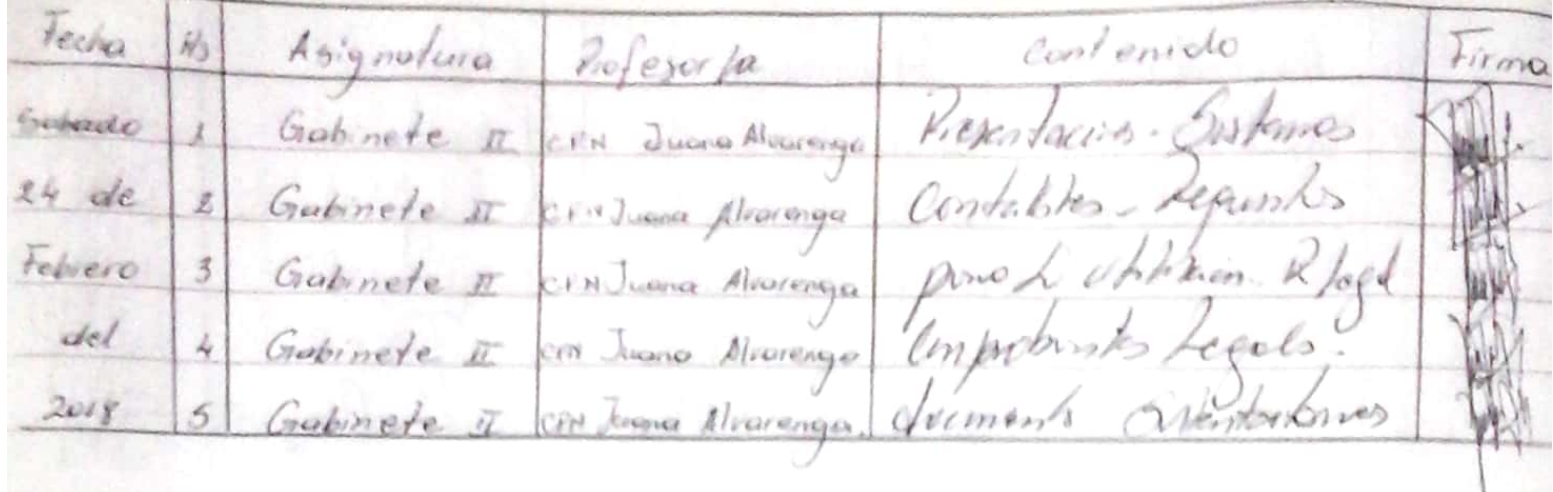 Fecha Hs Asignatura Profesor/a Contenido Firma
Sabado 1 Gabinete II CPN Juana Alvarenga Presentación - Sistemas
24 de 2 Gabinete II CPN Juana Alvarenga Contables - Requisitos
Febrero 3 Gabinete II CPN Juana Alvarenga para la utilización.
del 4 Gabinete II CPN Juana Alvarenga Comprobantes Legales.
2018 5 Gabinete II CPN Juana Alvarenga. documents